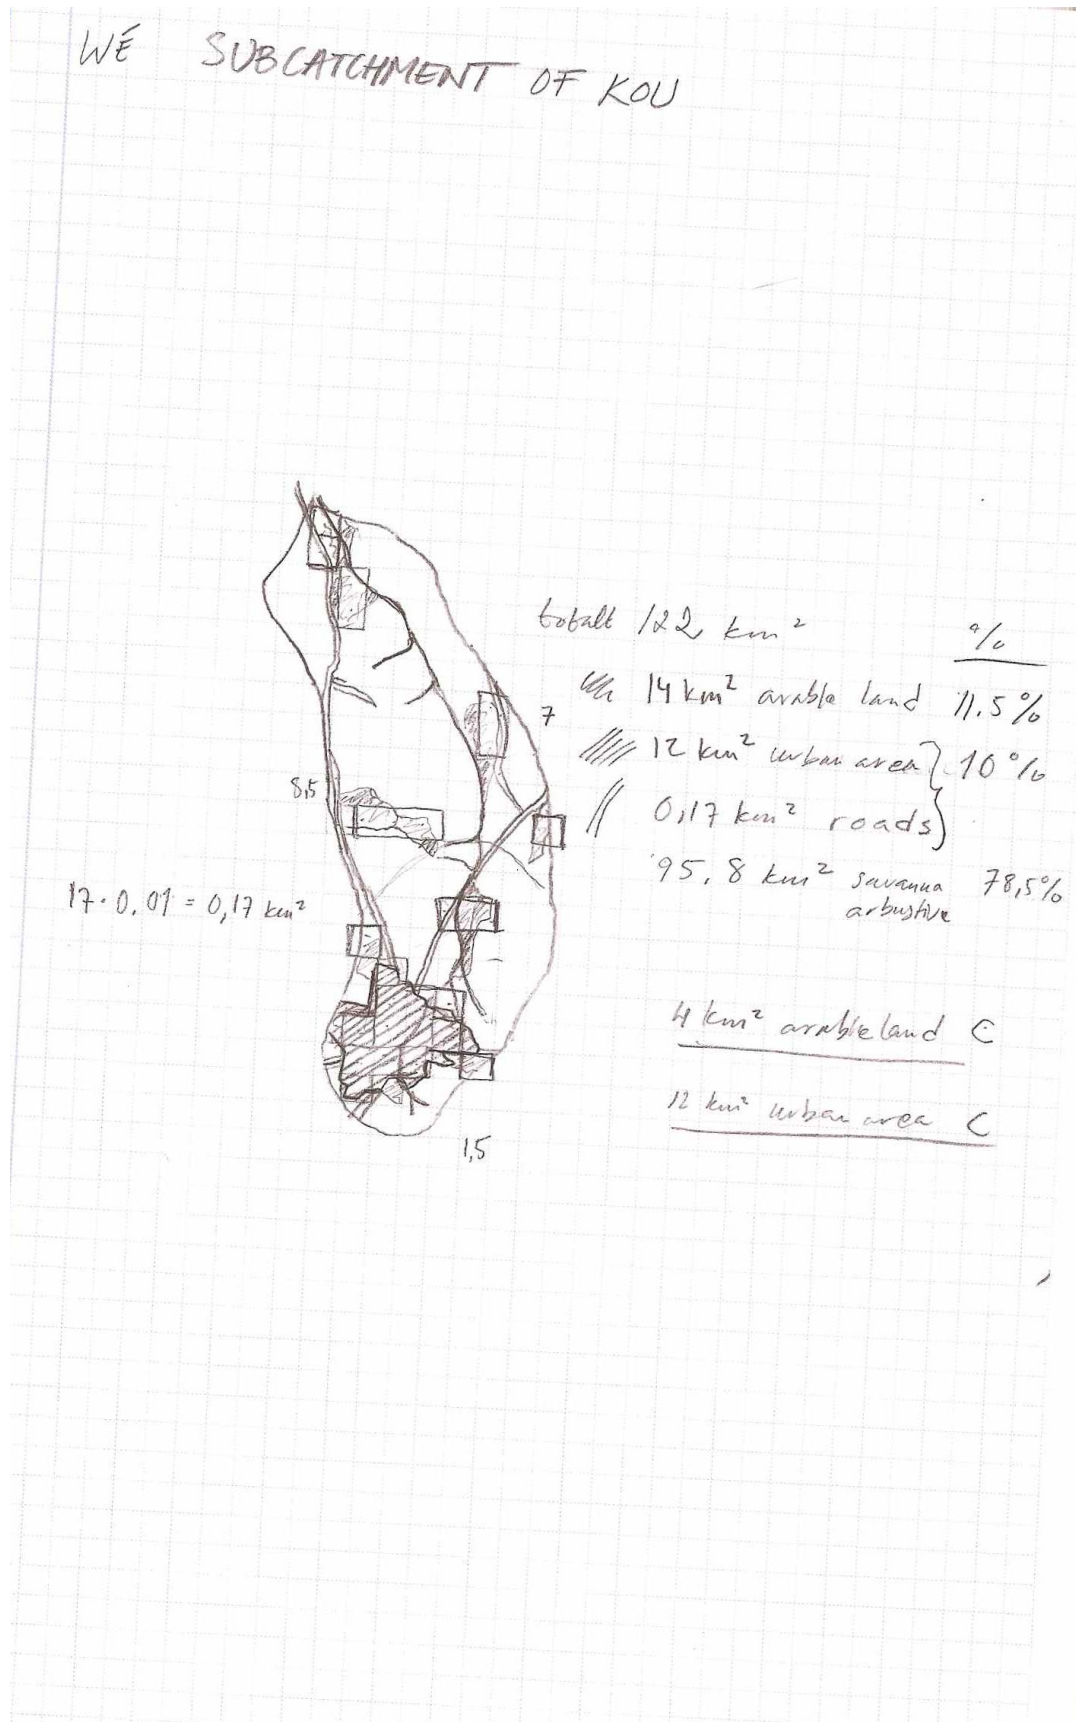 WÉ SUBCATCHMENT OF KOU
totalt 122 km² %
14 km² arable land 11.5%
7
12 km² urban area } 10%
8,5
0,17 km² roads
95,8 km² savanna 78,5%
arbustive
17·0,01 = 0,17 km²
4 km² arable land C
12 km² urban area C
1,5